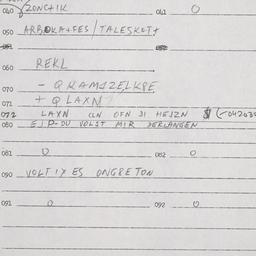 040 ZONCHIK 041 0
050 ARBOKAFES / TALESKOTT
060 REKL
070 - Q RAMSZELKPE
071 + Q LAXN
072 LAXN CLN OFN DI HEJZN
080 EJ P-DU VOLST MIR DERLANGEN
081 0 082 0
090 VOLT IX ES ONGRETON
091 0 092 0